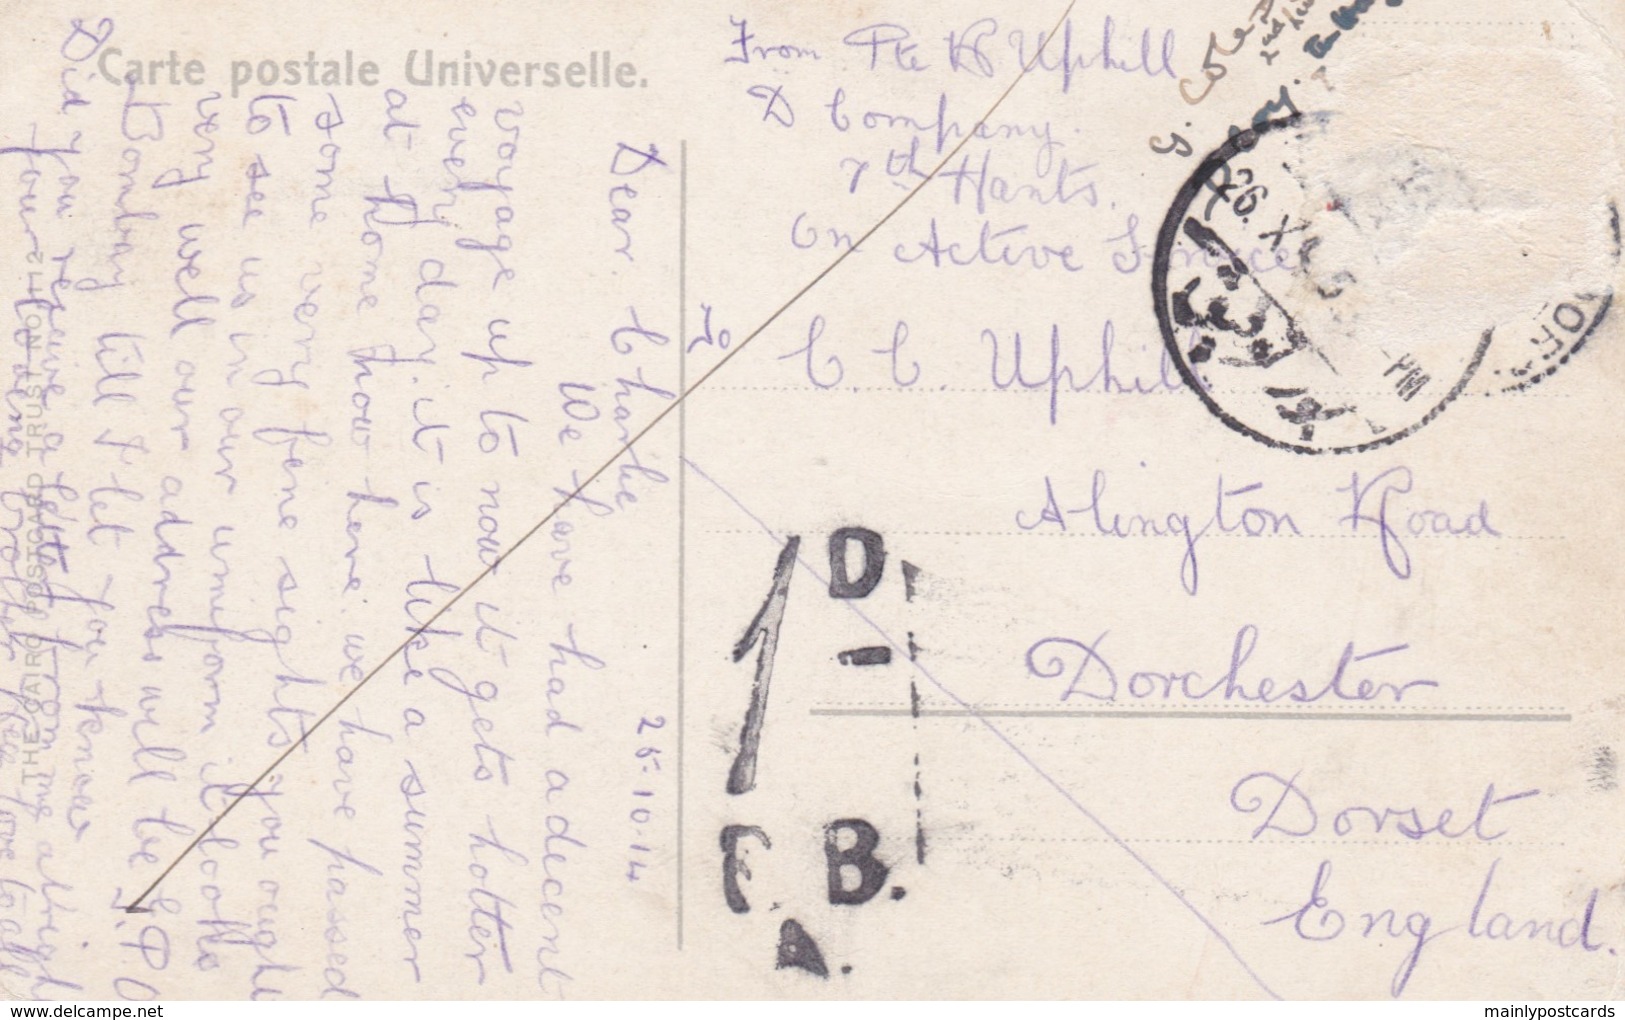 Carte postale Universelle.
From Pte W Uphill
D Company.
7th Hants.
On Active Service
To
C. C. Uphill
Alington Road
Dorchester
Dorset
England.
26. X
PM
1 D
-
F. B.
A.
25-10-14
Dear Charlie
We have had a decent
voyage up to now it gets hotter
every day. it is like a summer
at home now here. we have passed
some very fine sights you ought
to see us in our uniform it looks
very well our address will be G.P.O
Bombay till I let you know
Did you receive a letter from me alright
your loving brother
love to all
THE CAIRO POSTCARD TRUST NO
mainlypostcards